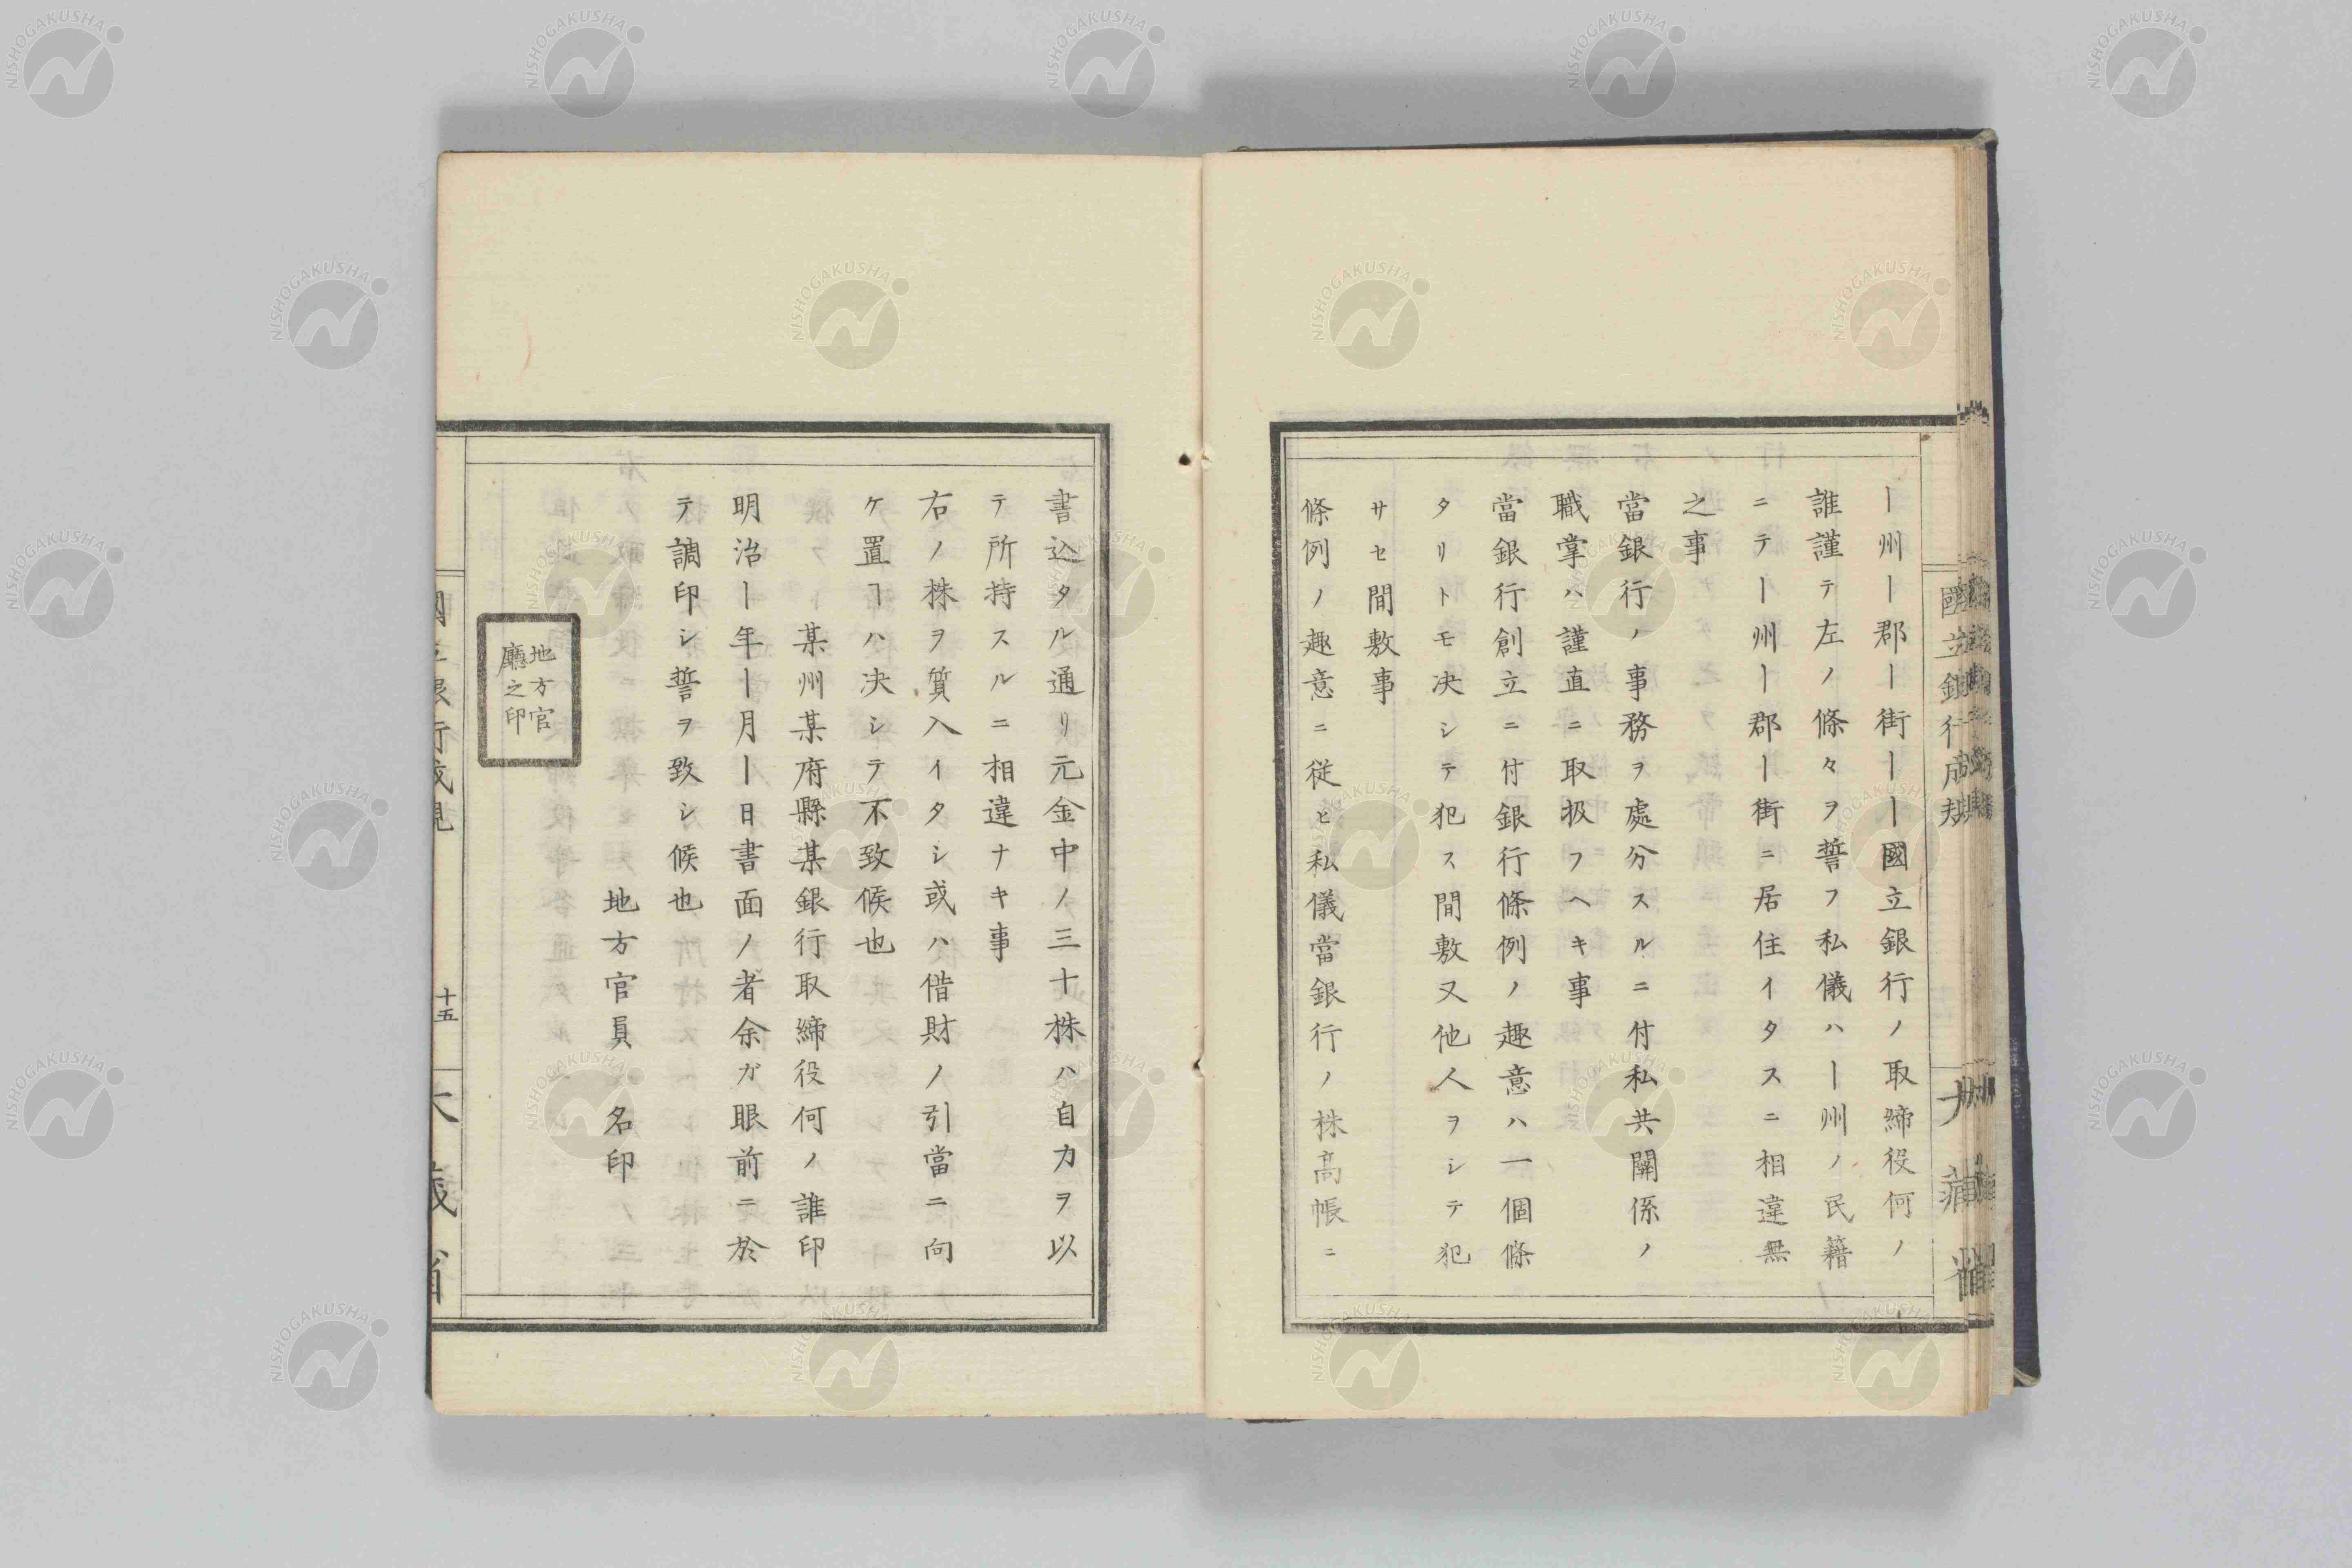 ー州ー郡ー街ーー國立銀行ノ取締役何ノ
誰謹テ左ノ條々ヲ誓フ私儀ハー州ノ民籍
ニテー州ー郡ー街ニ居住イタスニ相違無
之事
當銀行ノ事務ヲ處分スルニ付私共關係ノ
職掌ハ謹直ニ取扱フヘキ事
當銀行創立ニ付銀行條例ノ趣意ハ一個條
タリトモ决シテ犯ス間敷又他人ヲシテ犯
サセ間敷事
條例ノ趣意ニ従ヒ私儀當銀行ノ株高帳ニ
書込タル通リ元金中ノ三十株ハ自力ヲ以
テ所持スルニ相違ナキ事
右ノ株ヲ質入イタシ或ハ借財ノ引當ニ向
ケ置ヿハ决シテ不致候也
某州某府縣某銀行取締役何ノ誰印
明治ー年ー月ー日書面ノ者余ガ眼前ニ於
テ調印シ誓ヲ致シ候也
地方官員 名印
地方官
廳之印
十五
NISHOGAKUSHA